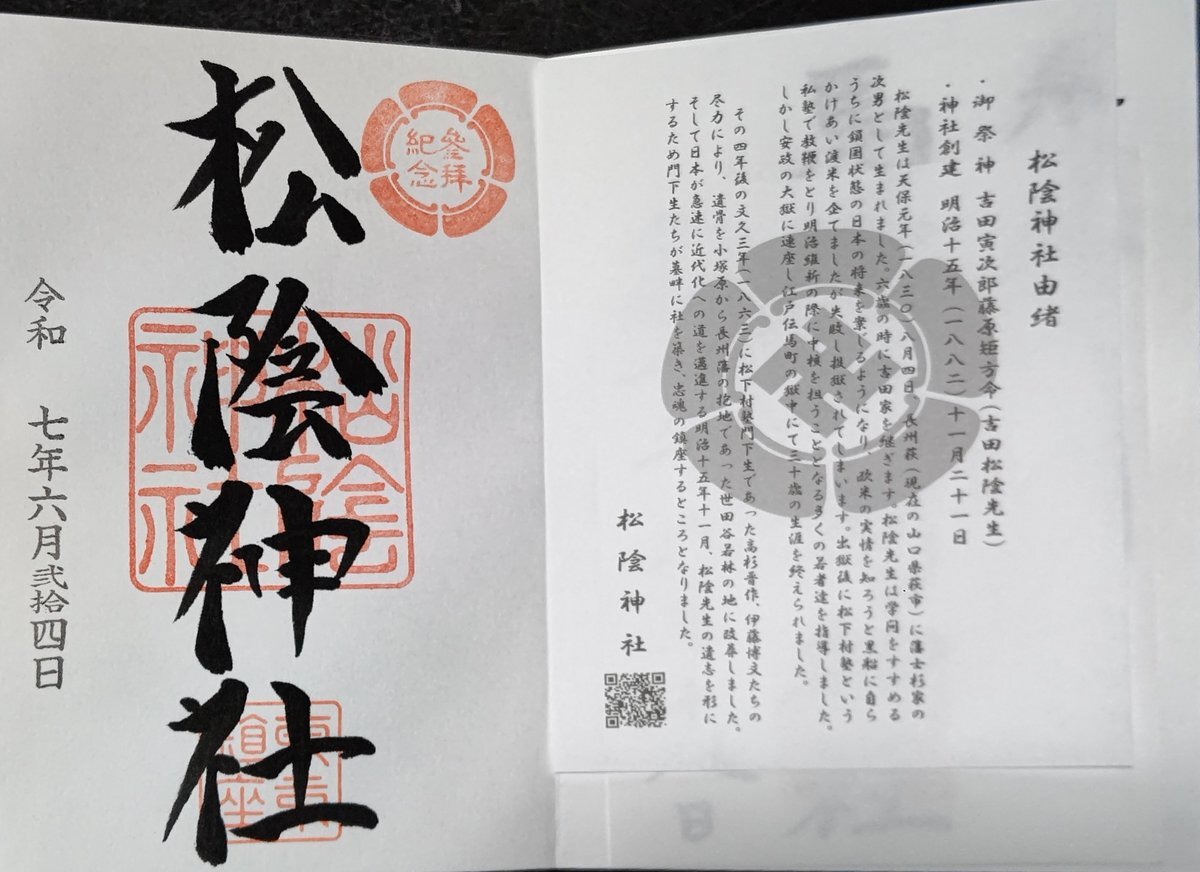 松陰神社由緒
・御祭神 吉田寅次郎藤原矩方命(吉田松陰先生)
・神社創建 明治十五年(一八八二)十一月二十一日
松陰先生は天保元年(一八三〇)八月四日、長州萩(現在の山口県萩市)に藩士杉家の
次男として生まれました。六歳の時に吉田家を継ぎます。松陰先生は学問をすすめる
うちに鎖国状態の日本の将来を案じるようになり、欧米の実情を知ろうと黒船に自ら
かけあい渡米を企てましたが失敗し投獄されてしまいます。出獄後に松下村塾という
私塾で教鞭をとり明治維新の際に中核を担うこととなる多くの若者達を指導しました。
しかし安政の大獄に連座し江戸伝馬町の獄中にて三十歳の生涯を終えられました。
その四年後の文久三年(一八六三)に松下村塾門下生であった高杉晋作、伊藤博文たちの
尽力により、遺骨を小塚原から長州藩の抱地であった世田谷若林の地に改葬しました。
そして日本が急速に近代化への道を邁進する明治十五年十一月、松陰先生の遺志を形に
するため門下生たちが墓畔に社を築き、忠魂の鎮座するところとなりました。
松陰神社
參拝
紀念
松陰神社
令和 七年六月弐拾四日